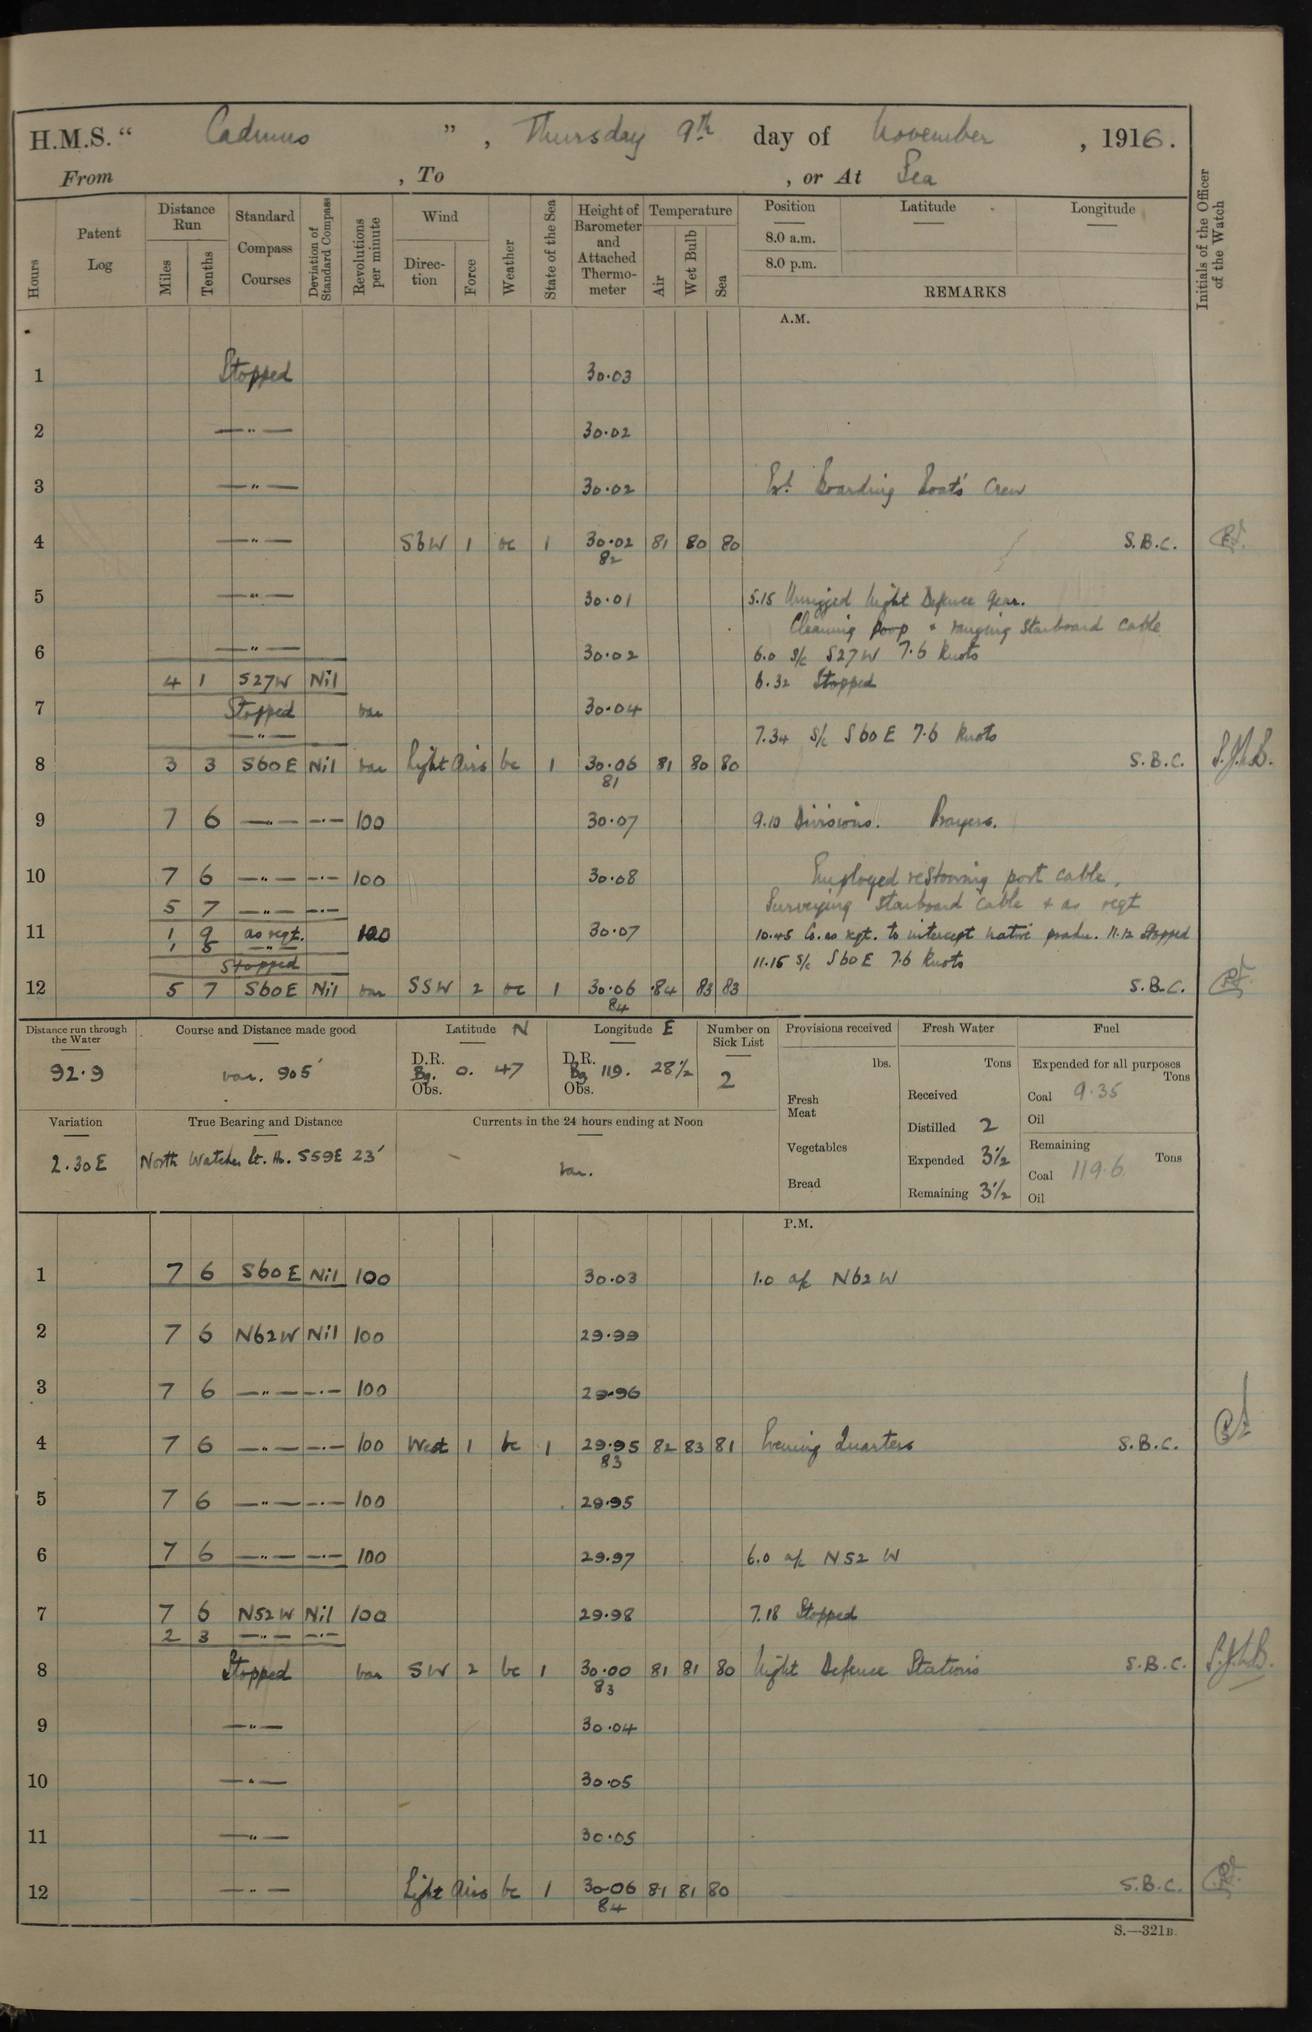 H.M.S. “ Cadmus ” , Thursday 9th day of November , 1916.
From , To , or At Sea
Hours
Patent Log
Distance Run
Miles
Tenths
Standard Compass Courses
Deviation of Standard Compass
Revolutions per minute
Wind
Direction
Force
Weather
State of the Sea
Height of Barometer and Attached Thermometer
Temperature
Air
Wet Bulb
Sea
Position
8.0 a.m.
8.0 p.m.
Latitude
Longitude
REMARKS
Initials of the Officer of the Watch
A.M.
1 Stopped 30.03
2 —"— 30.02
3 —"— 30.02 Boarding Boat's Crew
4 —"— SbW 1 1 30.02 81 80 80 S.B.C.
82
5 —"— 30.01 5.15 Unrigged Night Defence Gear.
Cleaning Poop & ranging Starboard Cable
6 —"— 30.02 6.0 S/c S27W 7.6 Knots
4 1 S27W Nil 6.32 Stopped
7 Stopped var 30.04
—"— 7.34 S/c S60E 7.6 Knots
8 3 3 S60E Nil var Light Airs bc 1 30.06 81 80 80 S.B.C.
81
9 7 6 —"— —"— 100 30.07 9.10 Divisions. Prayers.
10 7 6 —"— —"— 100 30.08 Employed restowing port cable,
5 7 —"— —"— Surveying starboard cable & as reqt
11 1 9 as reqt. 100 30.07 10.45 Co. as reqt. to intercept native prahu. 11.12 Stopped
1 —"—
Stopped 11.15 S/c S60E 7.6 Knots
12 5 7 S60E Nil var SSW 2 1 30.06 84 83 83 S.B.C.
84
Distance run through the Water
92.9
Course and Distance made good
var. 905'
Latitude N
D.R.
Bg. 0. 47
Obs.
Longitude E
D.R.
Bg 119. 28½
Obs.
Number on Sick List
2
Provisions received
lbs.
Fresh Meat
Vegetables
Bread
Fresh Water
Tons
Received
Distilled 2
Expended 3½
Remaining 3½
Fuel
Expended for all purposes
Tons
Coal 9.35
Oil
Remaining
Tons
Coal 119.6
Oil
Variation
2.30E
True Bearing and Distance
North Watcher Lt. Ho. S59E 23'
Currents in the 24 hours ending at Noon
var.
P.M.
1 7 6 S60E Nil 100 30.03 1.0 a/c N62W
2 7 6 N62W Nil 100 29.99
3 7 6 —"— —"— 100 29.96
4 7 6 —"— —"— 100 West 1 bc 1 29.95 82 83 81 Evening Quarters S.B.C.
83
5 7 6 —"— —"— 100 29.95
6 7 6 —"— —"— 100 29.97 6.0 a/c N52W
7 7 6 N52W Nil 100 29.98 7.18 Stopped
2 3 —"— —"—
8 Stopped var SW 2 bc 1 30.00 81 81 80 Night Defence Stations S.B.C.
83
9 —"— 30.04
10 —"— 30.05
11 —"— 30.05
12 —"— Light Airs bc 1 30.06 81 81 80 S.B.C.
84
S.—321B.